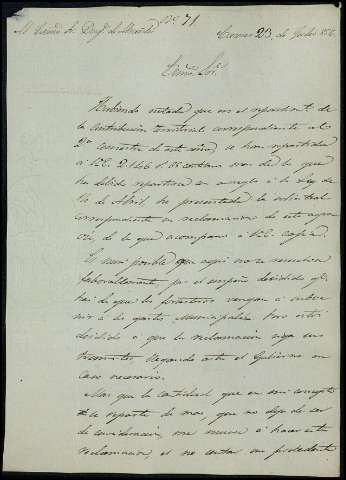 Nº 71
Al Exmo Sr. Duq. de
23 de Julio 156
Exmo Sor.
Habiendo notado que en el repartimt. de
la Contribucion territorial correspondiente al
2º semestre de este año se han repartido
á V.E. 2.146 r. 06 centimos mas de lo que
ha debido repartirse con arreglo á la Ley de
16 de Abril, he presentado la solicitud
correspondiente en reclamacion de este agra-
vio, de la que acompaño á V.E. copia.
Es muy posible que aqui no se resuelva
favorablemente, por el empeño decidido qe.
hai de que los forasteros vengan á subve-
nir á los gastos Municipales. Pero estoi
decidido á que la reclamacion siga sus
tramites llegando ante el Gobierno en
caso necesario.
Mas que la cantidad que en mi concepto
se reparte de mas, que no deja de ser
de consideracion, me mueve á hacer esta
reclamacion, el no sentar un precedente